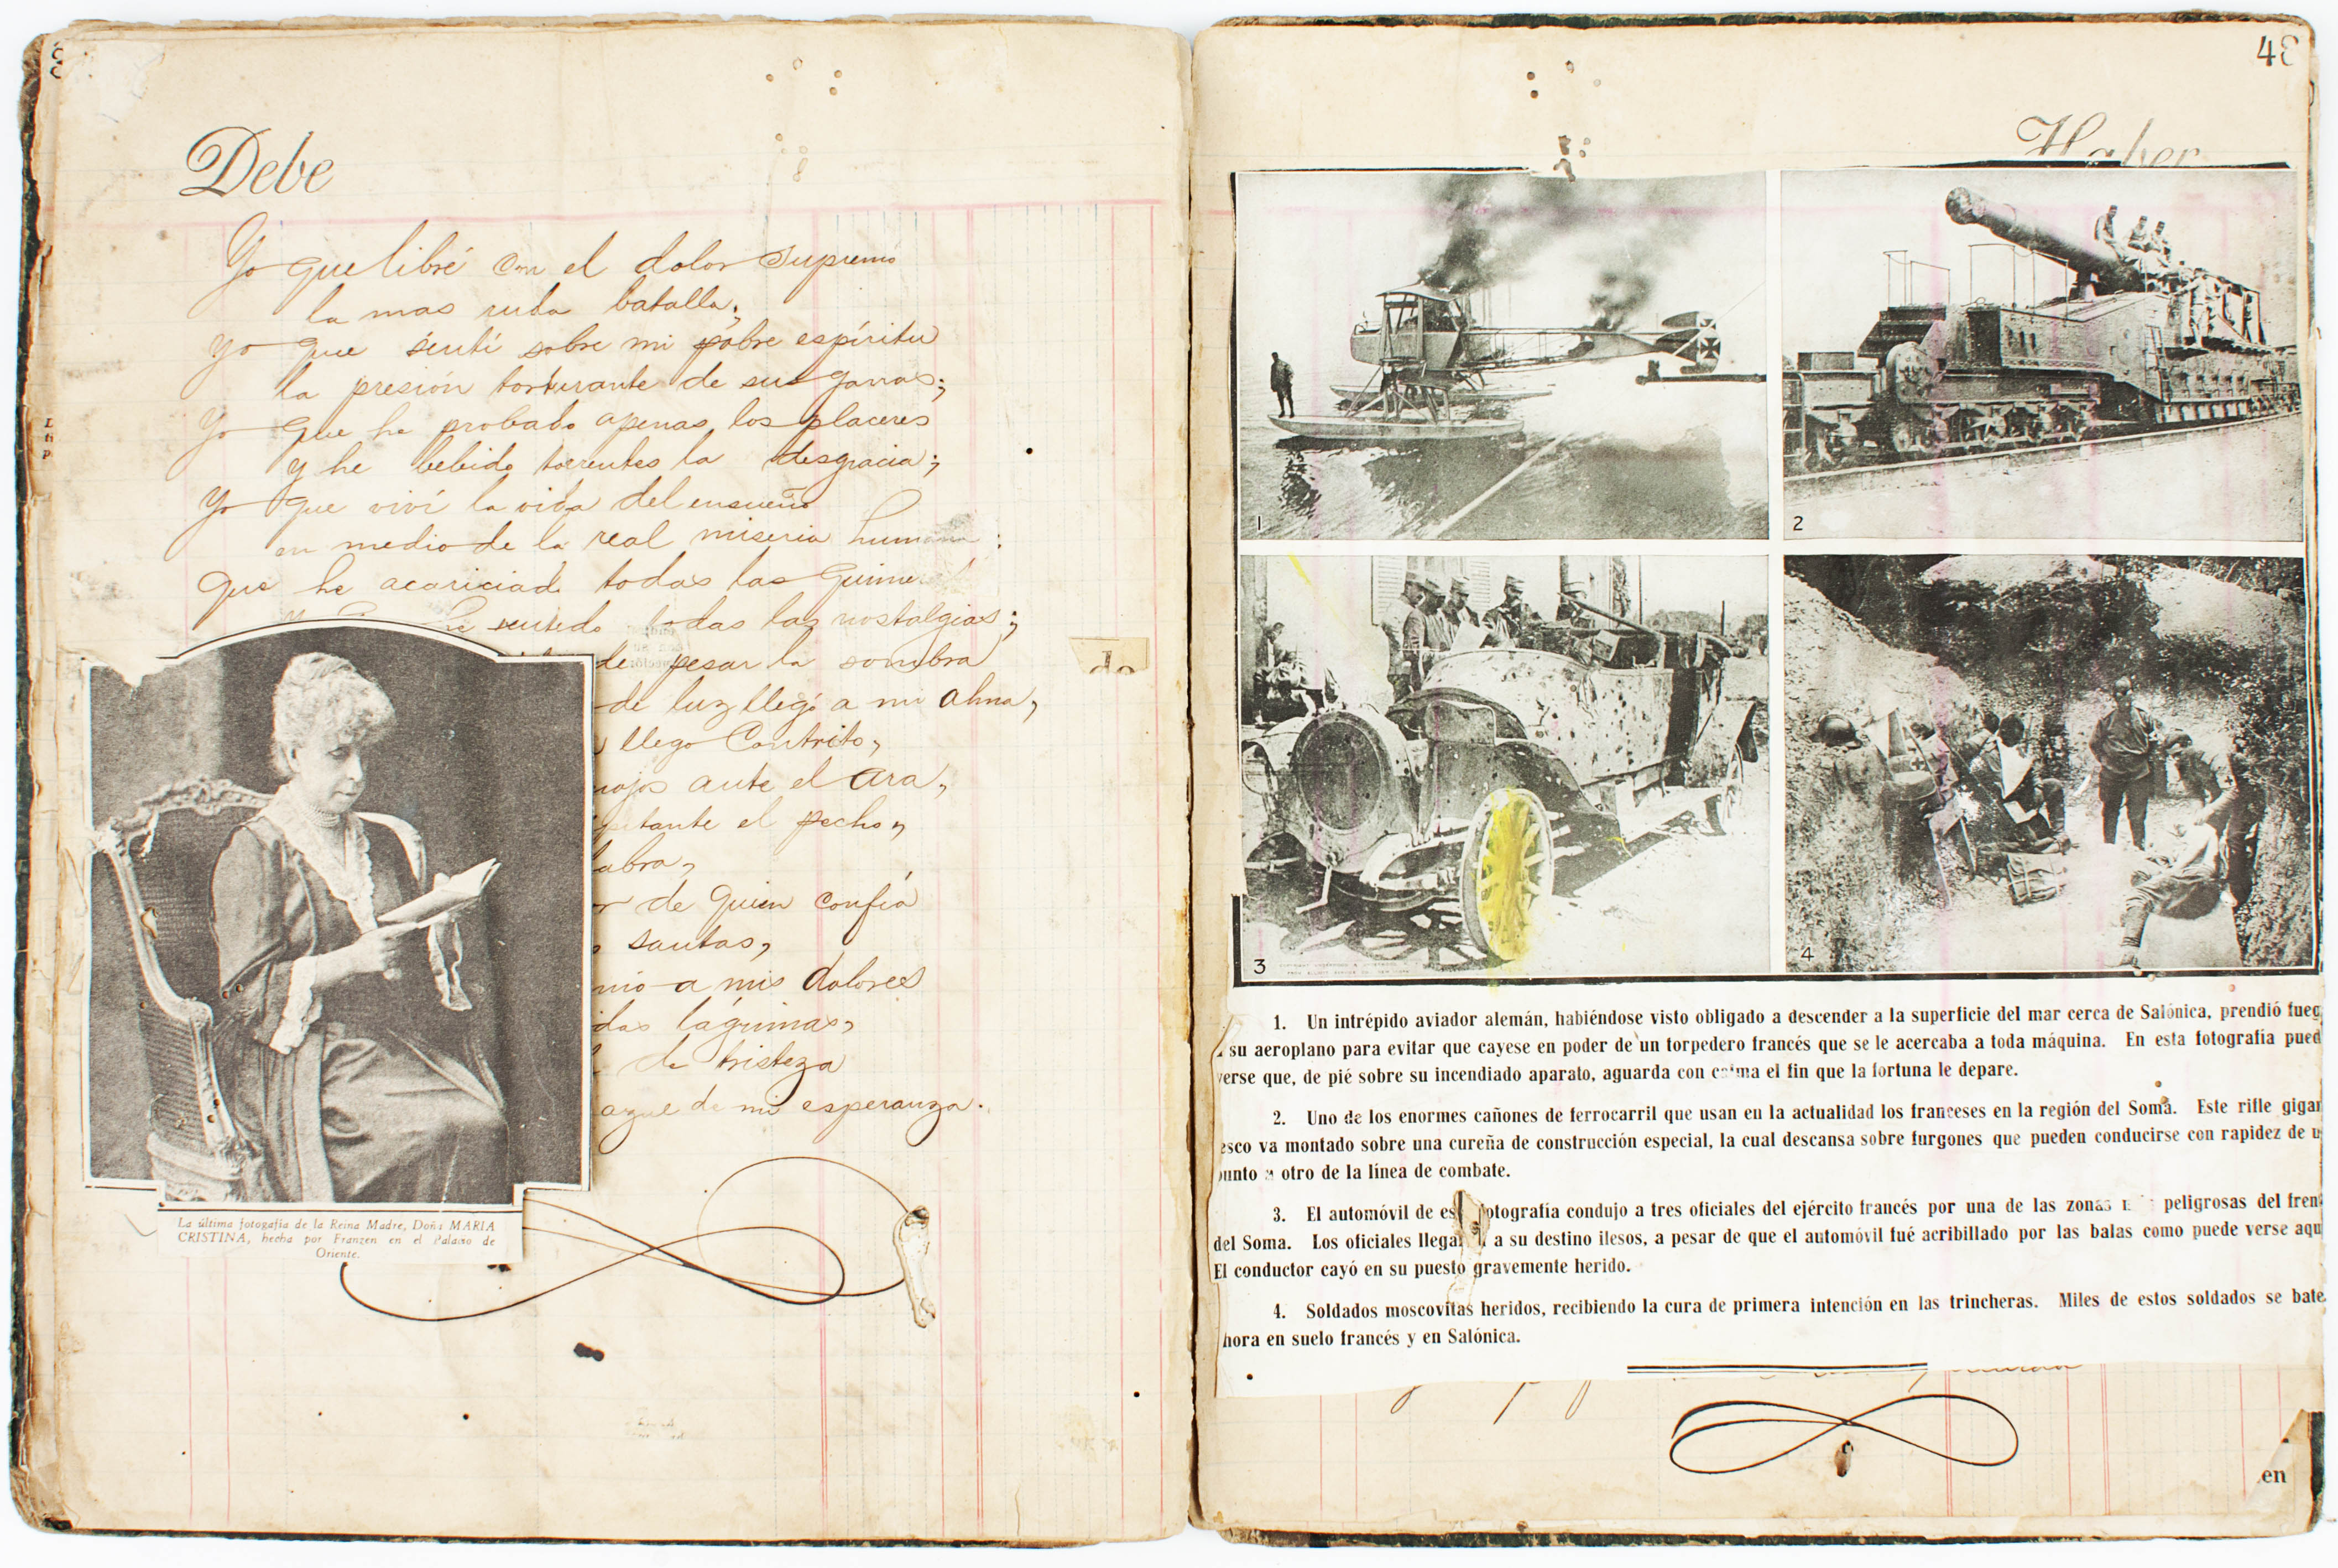 Debe
Yo que libré con el dolor supremo
la mas ruda batalla;
yo que sentí sobre mi pobre espíritu
la presión torturante de sus garras;
Yo que he probado apenas los placeres
y he bebido torrentes la desgracia;
Yo que viví la vida del ensueño
en medio de la real miseria humana:
que he acariciado todas las quimer
he sentido todas las nostalgias;
de pesar la sombra
de luz llegó a mi alma,
llego Contrito,
nojos ante el ara,
pitante el pecho,
labra,
r de quien confía
santas,
nió a mis dolores
das lágrimas,
de tristeza
azul de mi esperanza.
La última fotografía de la Reina Madre, Doña MARIA
CRISTINA, hecha por Franzen en el Palacio de
Oriente.
48
Haber
1
2
3
4
1. Un intrépido aviador alemán, habiéndose visto obligado a descender a la superficie del mar cerca de Salónica, prendió fueg
su aeroplano para evitar que cayese en poder de un torpedero francés que se le acercaba a toda máquina. En esta fotografía pued
verse que, de pié sobre su incendiado aparato, aguarda con calma el fin que la fortuna le depare.
2. Uno de los enormes cañones de ferrocarril que usan en la actualidad los franceses en la región del Soma. Este rifle gigan
esco va montado sobre una cureña de construcción especial, la cual descansa sobre furgones que pueden conducirse con rapidez de u
punto a otro de la línea de combate.
3. El automóvil de es otografía condujo a tres oficiales del ejército francés por una de las zonas peligrosas del fren
del Soma. Los oficiales llega a su destino ilesos, a pesar de que el automóvil fué acribillado por las balas como puede verse aqu
El conductor cayó en su puesto gravemente herido.
4. Soldados moscovitas heridos, recibiendo la cura de primera intención en las trincheras. Miles de estos soldados se bate
hora en suelo francés y en Salónica.
en